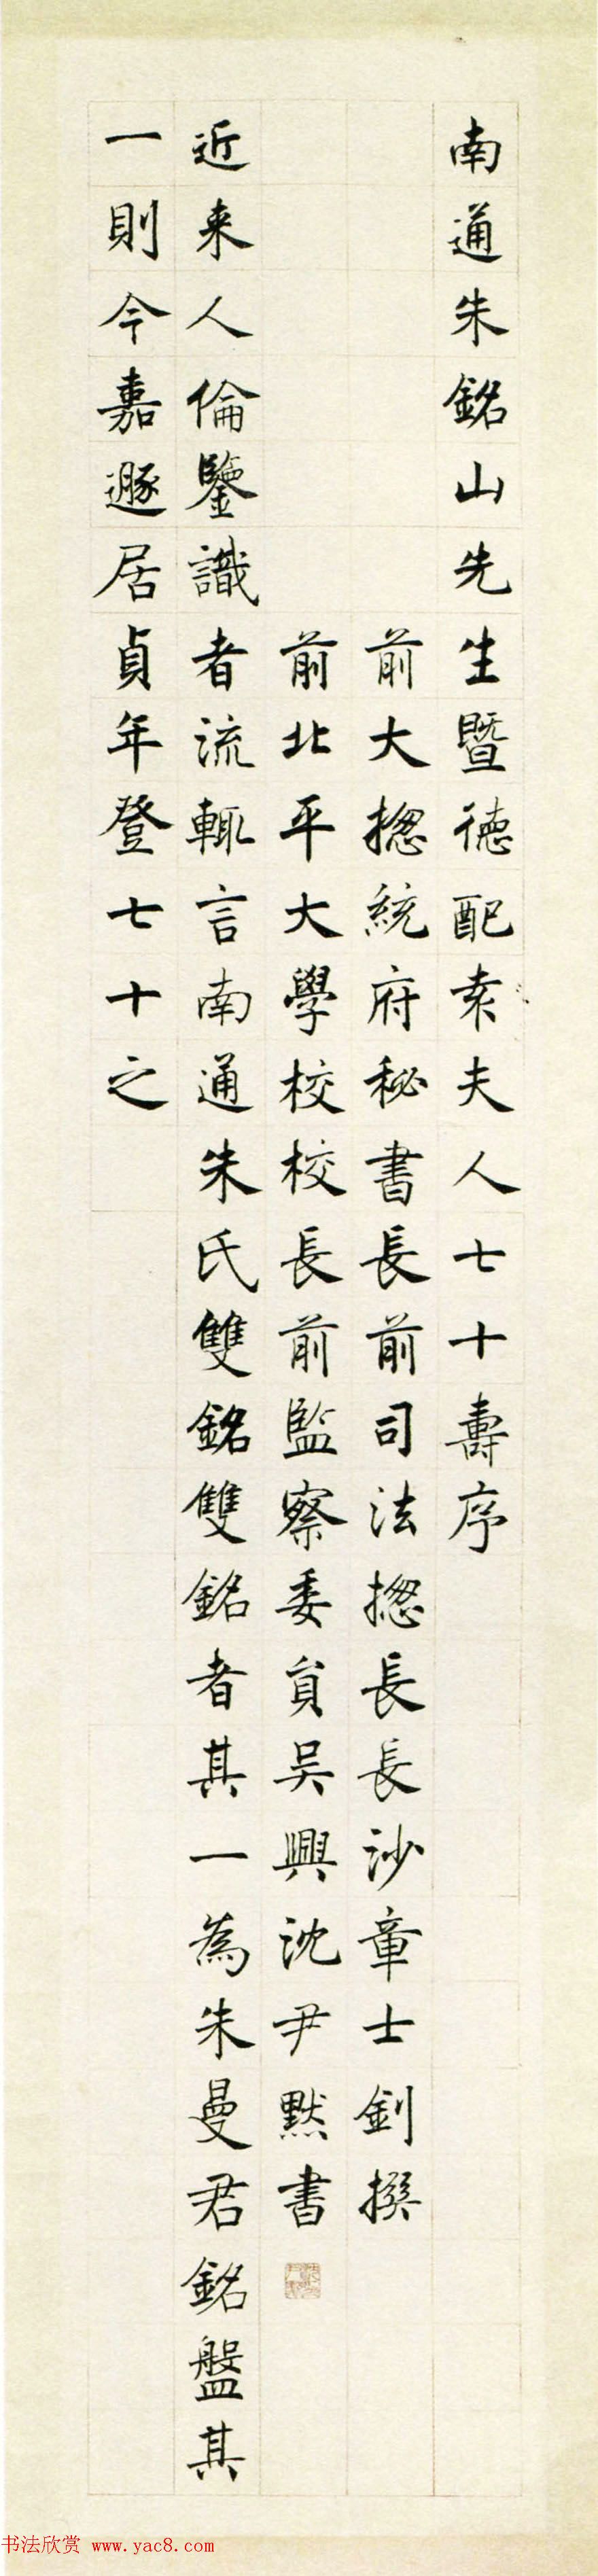 南通朱銘山先生暨德配袁夫人七十壽序
前大揔統府秘書長前司法揔長長沙章士釗撰
前北平大學校校長前監察委員吴興沈尹默書
近来人倫鑒識者流輙言南通朱氏雙銘雙銘者其一為朱曼君銘盤其
一則今嘉遯居貞年登七十之
书法欣赏 www.yac8.com